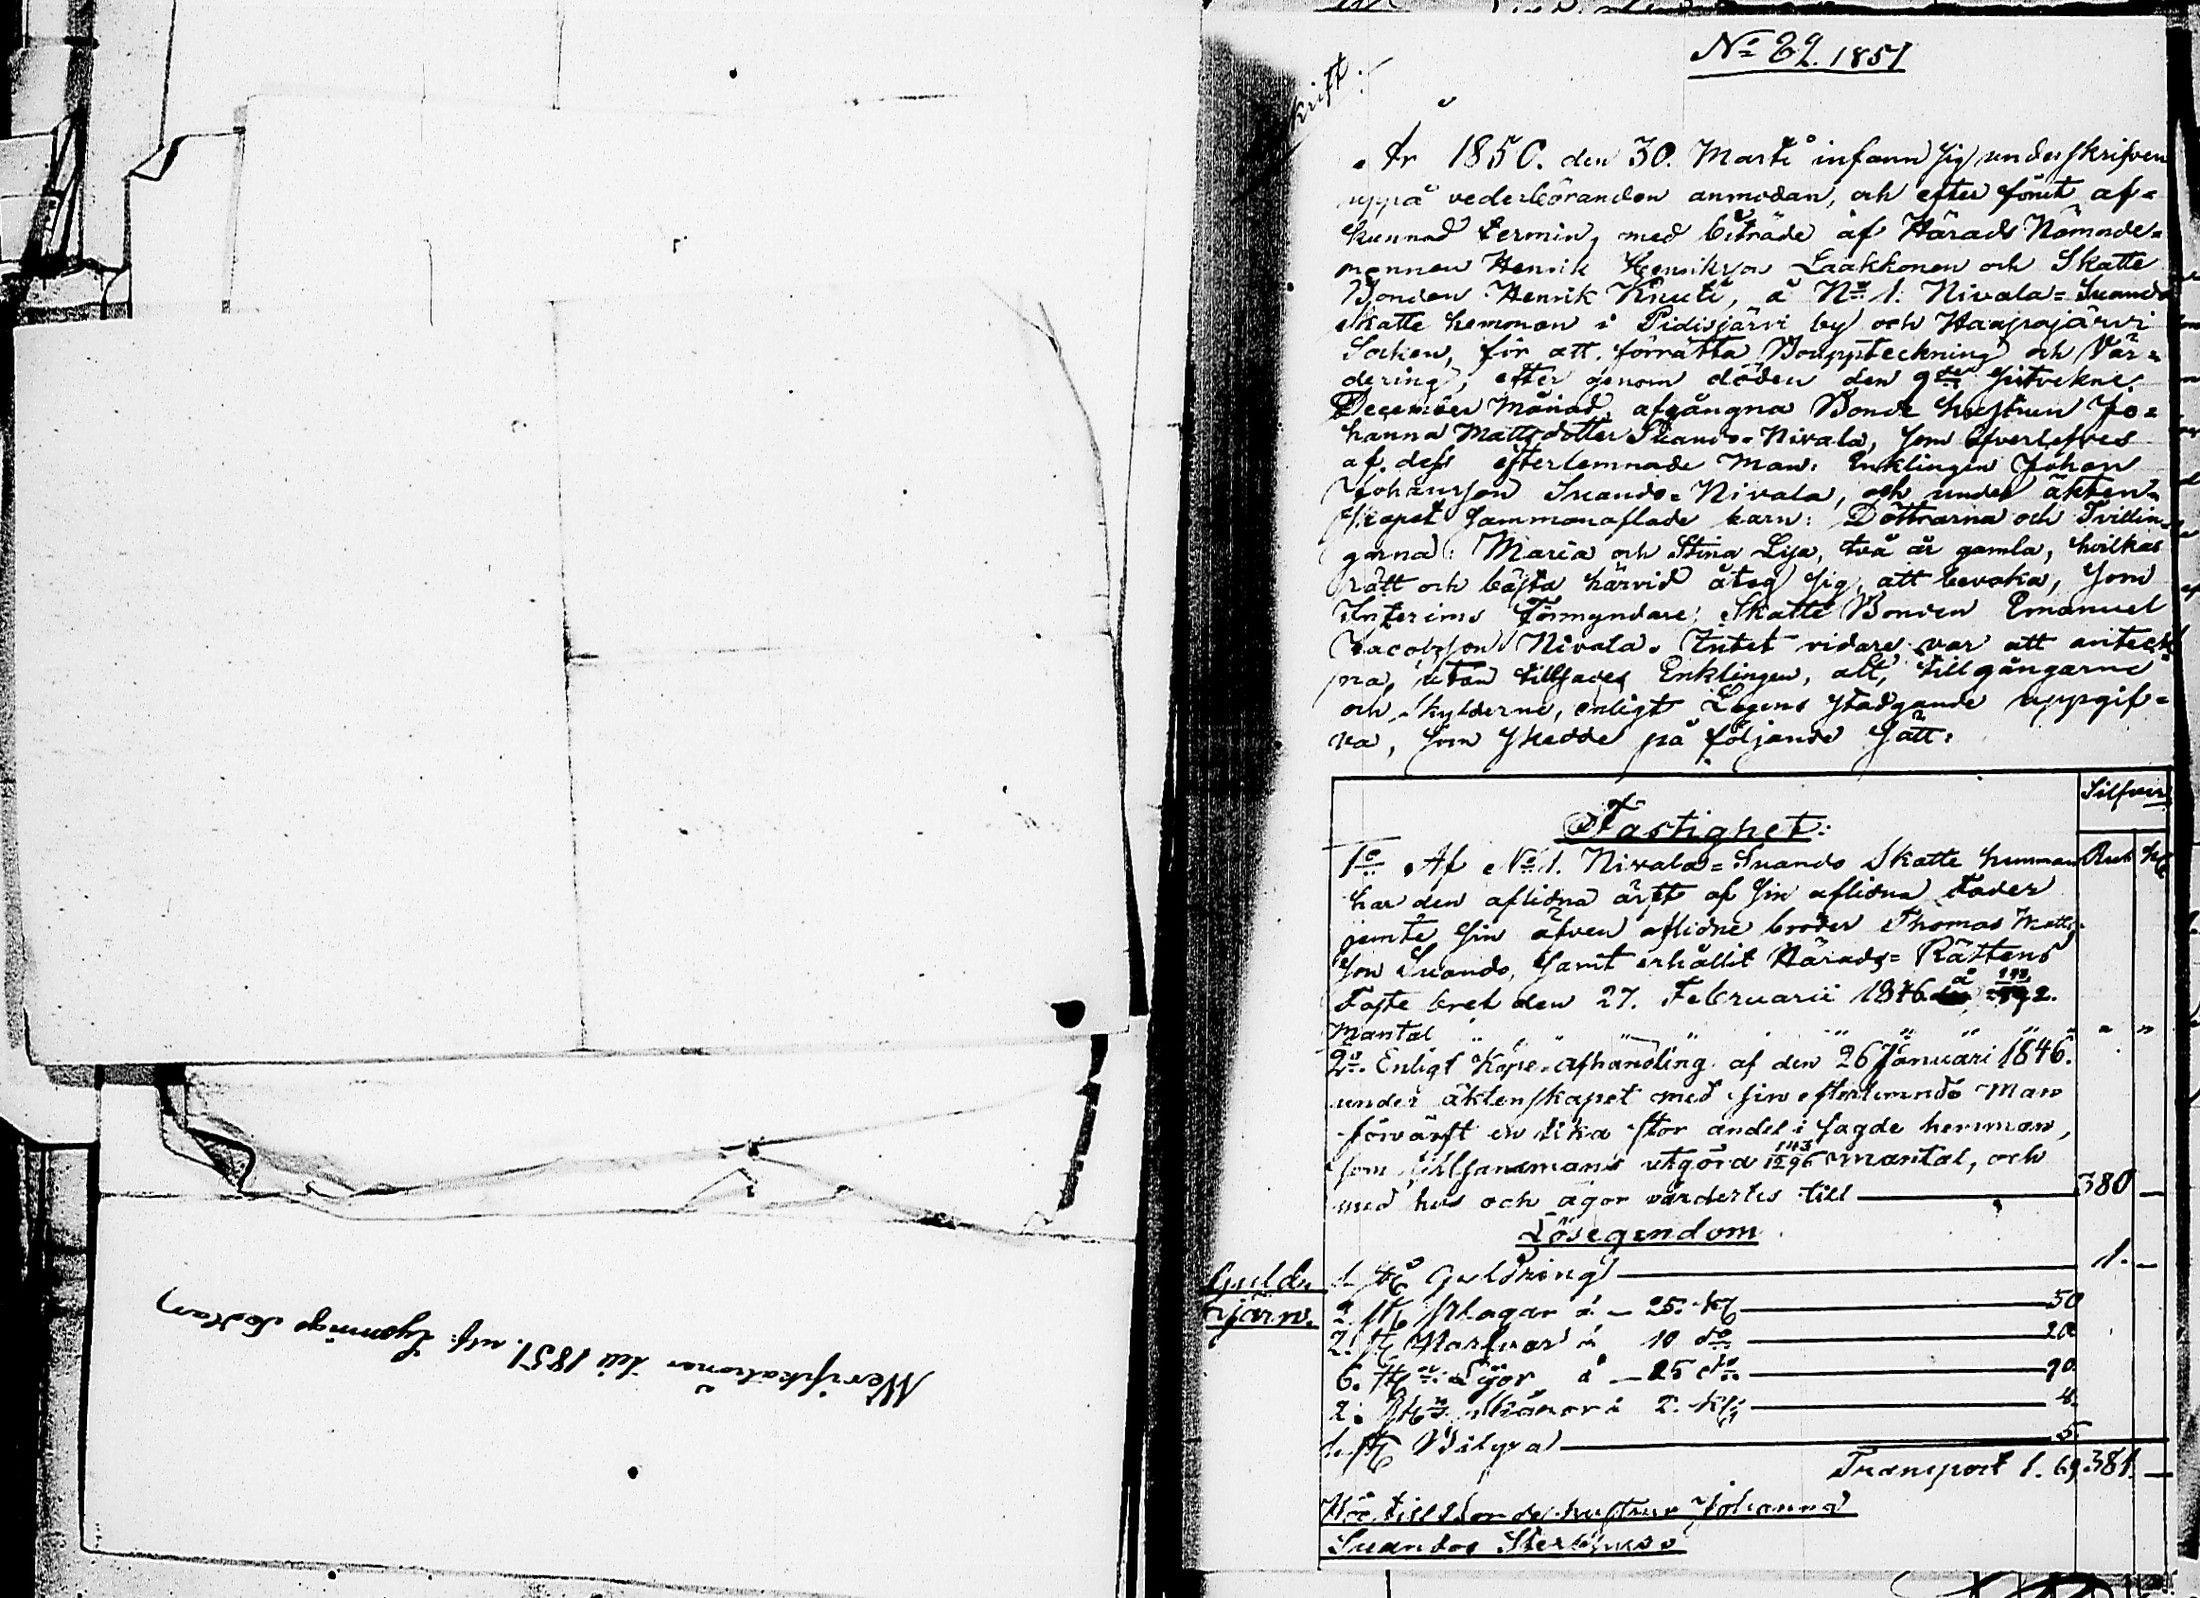 Verifikationer till 1851.
No 89. 1851
År 1850. den 30. Marti infann sig underskrifven
uppå vederböranden anmodan, och efter förut af=
kunnad termin, med biträde af Härads Nämnde=
mannen Henrik Henriksson Laakkonen och Skatte
Bonden Henrik Knuti, å No 1. Nivala=Suando
skatte hemman i Pidisjärvi by och Haapajärvi
Socken, för att förrätta Bouppteckning och Vär=
dering, efter genom döden den 9de sistvekne
December Månad, afgångna Bonde hustrun Jo=
hanna Mattsdotter Suando=Nivala, som öfverlefves
af dess efterlemnade Man: Enklingen Johan
Johansson Suando=Nivala, och under äkten=
skapet sammanaflade barn: Döttrarna och Tvillin=
garna: Maria och Stina Lisa, två år gamla, hvilkas
rätt och bästa härvid åtog sig, att bevaka, som
Interims Förmyndare, Skatte Bonden Emanuel
Jacobsson Nivala. Intet vidare var att anteck
na, utan tillsades Enklingen, att, tillgångarne
och skylderne, enligt Lagens stadgande uppgif=
va, som skedde på följande sätt:
Silfver
Fastighet:
1o Af No 1. Nivala=Suando Skatte hemman Rub K
har den aflidna ärft af sin aflidna Fader
jemte sin äfven aflidne broder Thomas Matts
son Suando, samt erhållit Härads=Rättens
Faste bref den 27. Februarii 1846 å
Mantal " " " " " " " "
2o Enligt Köpe-afhandling af den 26 Januari 1846.
under äktenskapet med sin efterlemnde Man
förvärft en lika stor andel i sagde hemman,
som tillsammans utgöra 143/1296 mantal, och
med hus och ägor värdertes till 380 —
Lösegendom
Guld. 1 st Guldring 1. —
Järn. 2 st Plogar á — 25. K 50
2. st Harfvar á 10 do 20
6. st Lijor á — 15 do 90
2. st Skäror á 2. K 4.
1. st Bilyxa 5.
Transport 1. 69 381. —
Hör till Bonde hustrun Johanna
Suandos Sterbhus